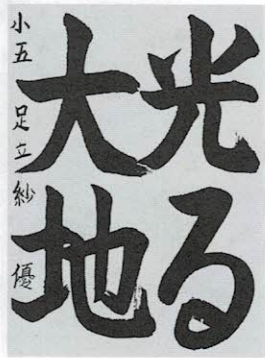 光る
大地
小五 足立紗優